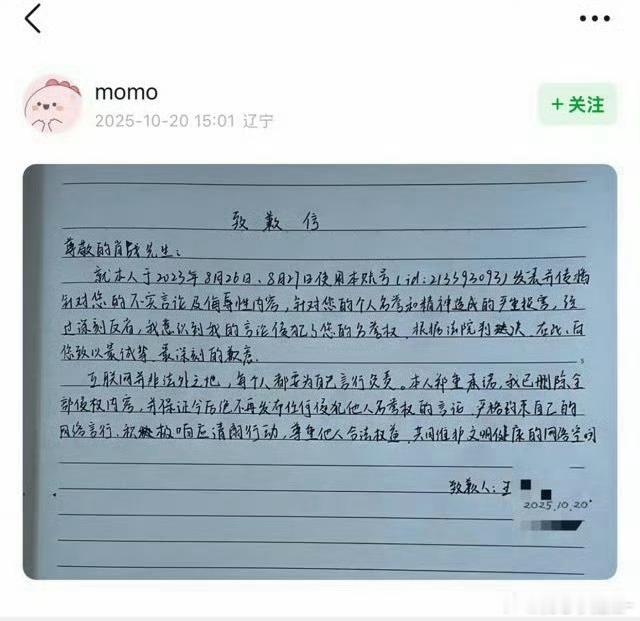 momo
2025-10-20 15:01 辽宁
+关注
致歉信
尊敬的肖战先生：
就本人于2023年8月26日、8月27日使用本账号（id:213393093）发表并传播
针对您的不实言论及侮辱性内容，针对您的个人名誉和精神造成的严重损害，经
过深刻反省，我意识到我的言论侵犯了您的名誉权。根据法院判决，在此，向
您致以最诚挚、最深刻的歉意。
互联网并非法外之地，每个人都要为自己言行负责。本人郑重承诺，我已删除全
部侵权内容，并保证今后绝不再发布任何侵犯他人名誉权的言论，严格约束自己的
网络言行，积极响应清朗行动，尊重他人合法权益，共同维护文明健康的网络空间
致歉人：王
2025.10.20.